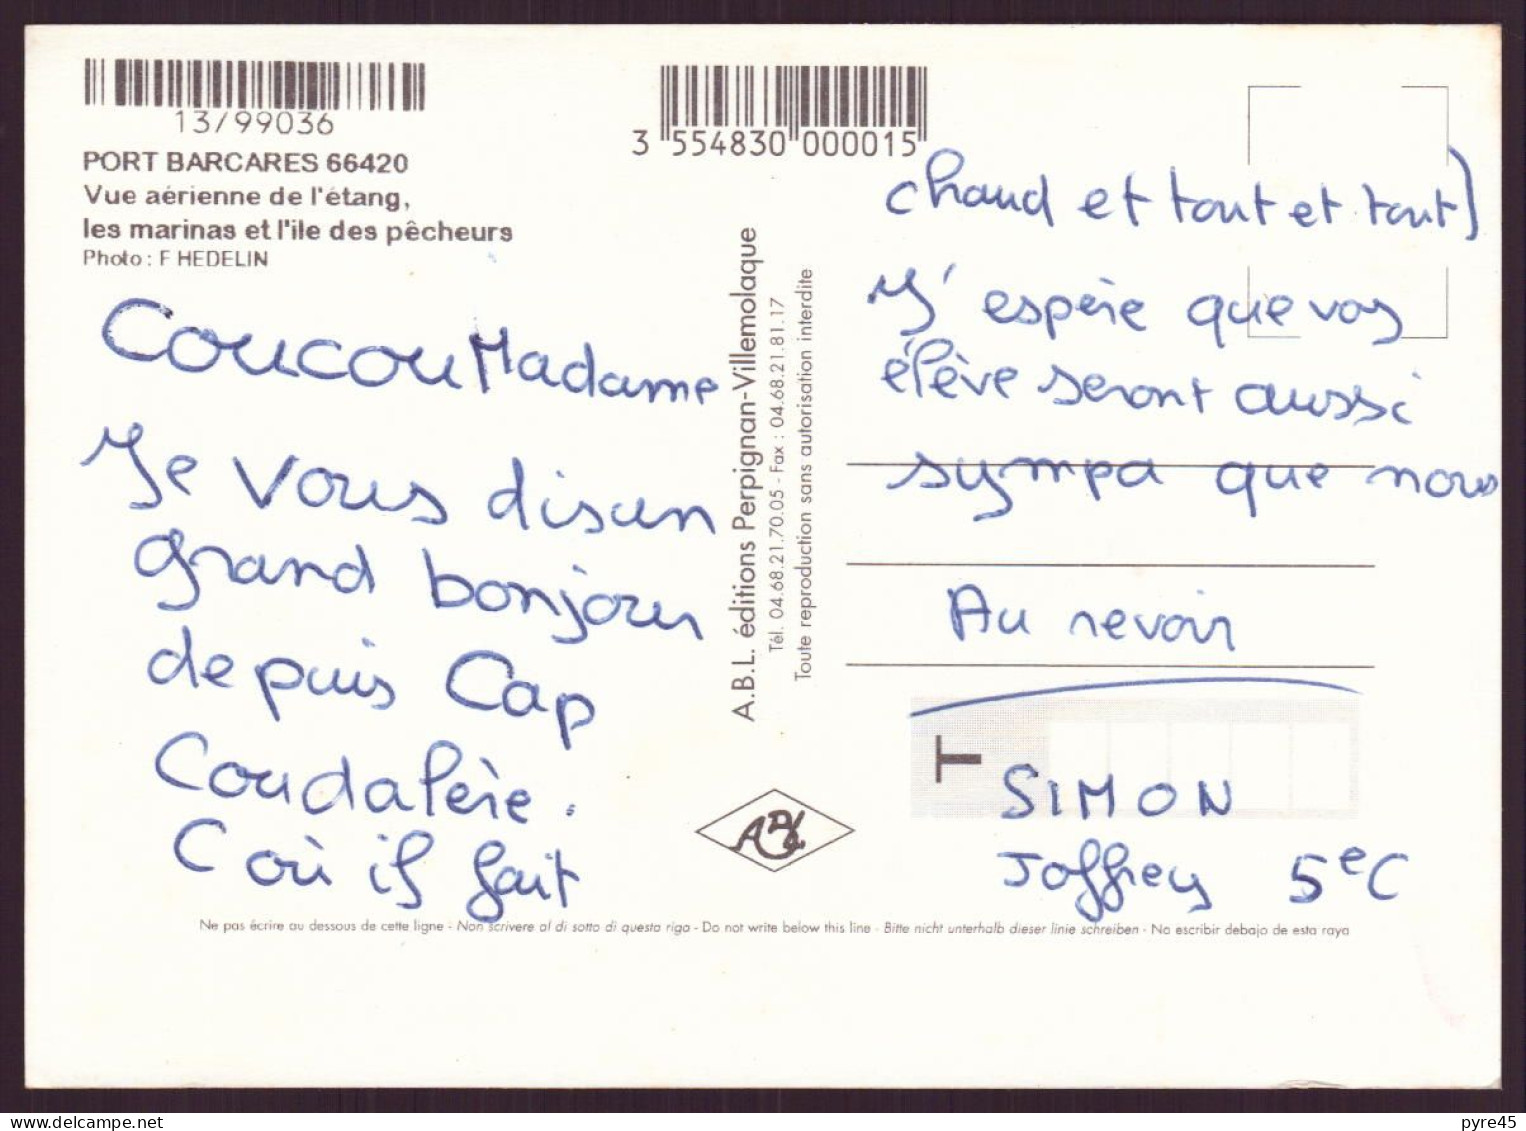 13/99036
PORT BARCARES 66420
Vue aérienne de l'étang,
les marinas et l'ile des pêcheurs
Photo : F HEDELIN
Coucou Madame
Je vous dis un
grand bonjour
depuis Cap
Coudalère.
( où il fait
3 554830 000015
A.B.L. éditions Perpignan-Villemolaque
Tél. 04.68.21.70.05 - Fax : 04.68.21.81.17
Toute reproduction sans autorisation interdite
chaud et tout et tout)
J'espère que vos
élève seront aussi
sympa que nous
Au revoir
T
SIMON
Joffrey 5eC
ABL
Ne pas écrire au dessous de cette ligne - Non scrivere al di sotto di questa riga - Do not write below this line - Bitte nicht unterhalb dieser linie schreiben - No escribir debajo de esta raya
pyre45